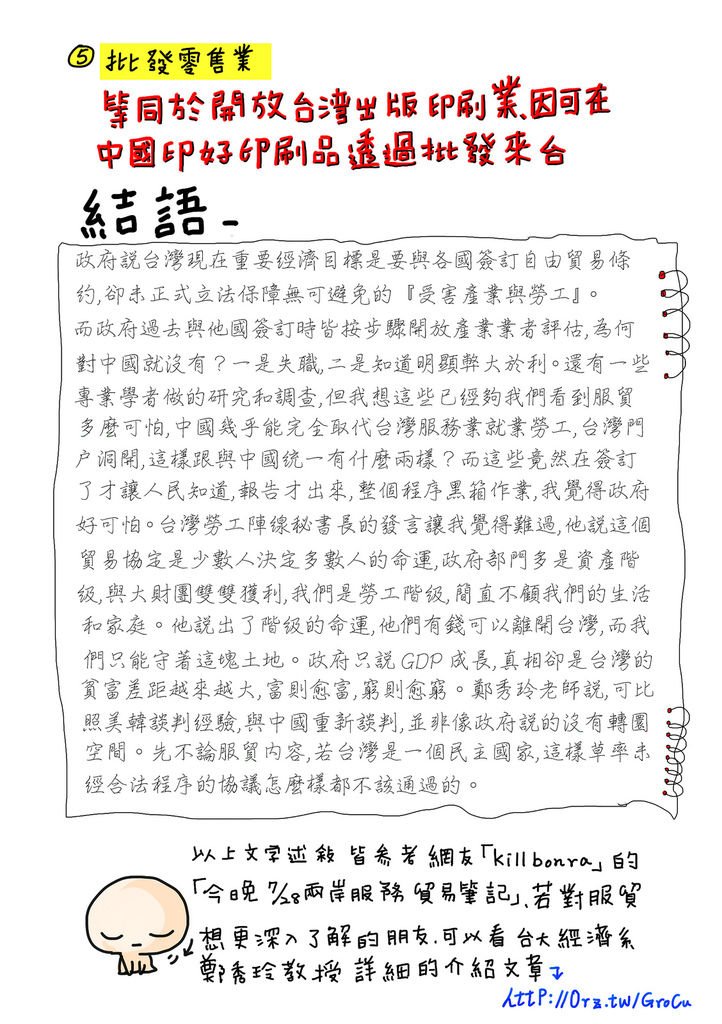 ⑤ 批發零售業
等同於開放台灣出版印刷業、因可在
中國印好印刷品透過批發來台
結語-
政府說台灣現在重要經濟目標是要與各國簽訂自由貿易條
約,卻未正式立法保障無可避免的『受害產業與勞工』。
而政府過去與他國簽訂時皆按步驟開放產業業者評估,為何
對中國就沒有？一是失職,二是知道明顯弊大於利。還有一些
專業學者做的研究和調查,但我想這些已經夠我們看到服貿
多麼可怕,中國幾乎能完全取代台灣服務業就業勞工,台灣門
戶洞開,這樣跟與中國統一有什麼兩樣？而這些竟然在簽訂
了才讓人民知道,報告才出來,整個程序黑箱作業,我覺得政府
好可怕。台灣勞工陣線秘書長的發言讓我覺得難過,他說這個
貿易協定是少數人決定多數人的命運,政府部門多是資產階
級,與大財團雙雙獲利,我們是勞工階級,簡直不顧我們的生活
和家庭。他說出了階級的命運,他們有錢可以離開台灣,而我
們只能守著這塊土地。政府只說GDP成長,真相卻是台灣的
貧富差距越來越大,富則愈富,窮則愈窮。鄭秀玲老師說,可比
照美韓談判經驗,與中國重新談判,並非像政府說的沒有轉圜
空間。先不論服貿內容,若台灣是一個民主國家,這樣草率未
經合法程序的協議怎麼樣都不該通過的。
以上文字述敘皆參考網友「killbonra」的
「今晚7/28兩岸服務貿易筆記」、若對服貿
想更深入了解的朋友、可以看台大經濟系
鄭秀玲教授詳細的介紹文章
HTTP://Orz.tw/GroCu